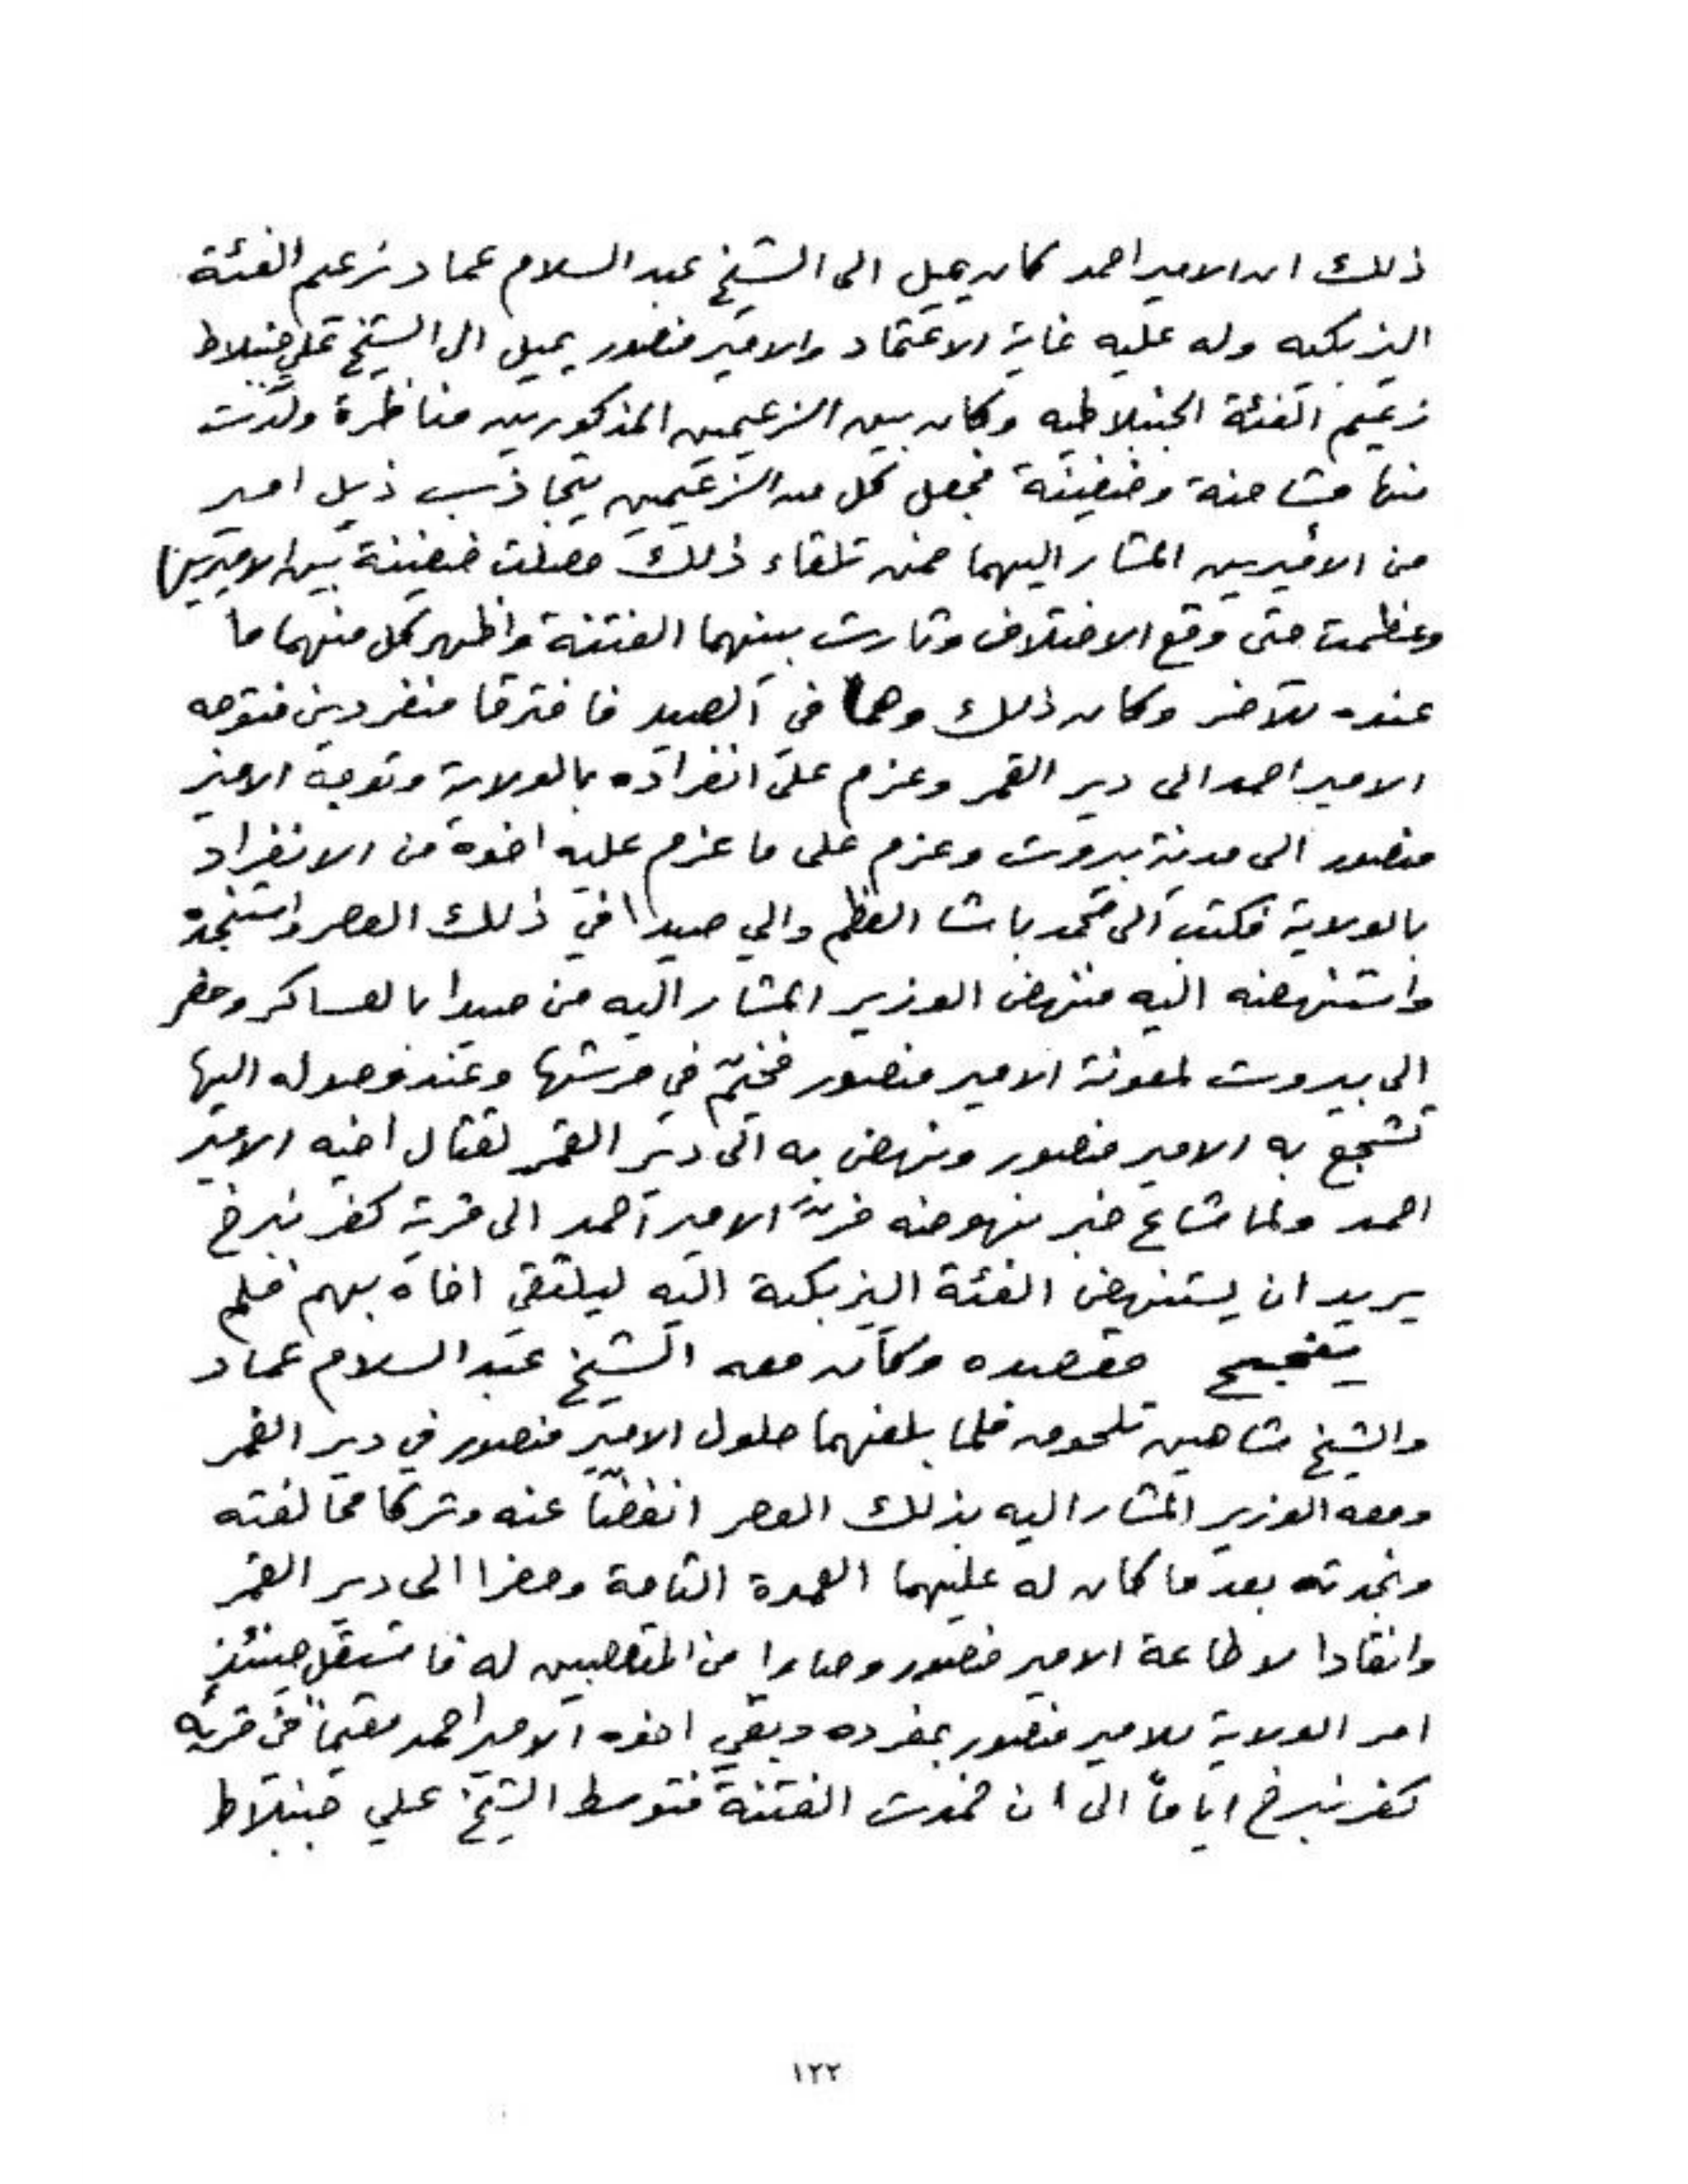 ذلك ان الامير احمد كان يميل الى الشيخ عبد السلام عماد زعيم الفئة
اليزبكيه وله عليه غاية الاعتماد والامير منصور يميل الى الشيخ علي جنبلاط
زعيم الفئة الجنبلاطيه وكان بين الزعيمين المذكورين مناظرة ولدت
منها مشاحنة وضغينة فجعل كل من الزعيمين يتجاذب ذيل امير
من الاميرين المشار اليهما فمن تلقاء ذلك حصلت ضغينة بين الاميرين
وعظمت حتى وقع الاختلاف وثارت بينهما الفتنة واظهر كل منهما ما
عنده للآخر وكان ذلك وهما في الصيد فافترقا منفردين فتوجه
الامير احمد الى دير القمر وعزم على انفراده بالولاية وتوجه الامير
منصور الى مدينة بيروت وعزم على ما عزم عليه اخوه من الانفراد
بالولاية فكتب الى محمد باشا العظم والي صيدا في ذلك العصر واستنجده
واستنهضه اليه فنهض الوزير المشار اليه من صيدا بالعساكر وحضر
الى بيروت لمعونة الامير منصور فخيّم في حرشها وعند وصوله اليها
تشجع به الامير منصور ونهض به الى دير القمر لقتال اخيه الامير
احمد ولما شاع خبر نهوضه فرّ الامير احمد الى قرية كفر نبرخ
يريد ان يستنهض الفئة اليزبكية اليه ليلتقي اخاه بهم فلم
ينجح مقصده وكان معه الشيخ عبد السلام عماد
والشيخ شاهين تلحوق فلما بلغهما حلول الامير منصور في دير القمر
ومعه الوزير المشار اليه بذلك العصر انفضّا عنه وتركا مخالفته
ونجدته بعد ما كان له عليهما العمدة التامة وحضرا الى دير القمر
وانقادا لاطاعة الامير منصور وصارا من المتعصبين له فاستقل حينئذٍ
امر الولاية للامير منصور بمفرده وبقي اخوه الامير احمد مقيماً في قرية
كفر نبرخ اياماً الى ان خمدت الفتنة فتوسط الشيخ علي جنبلاط
١٢٢